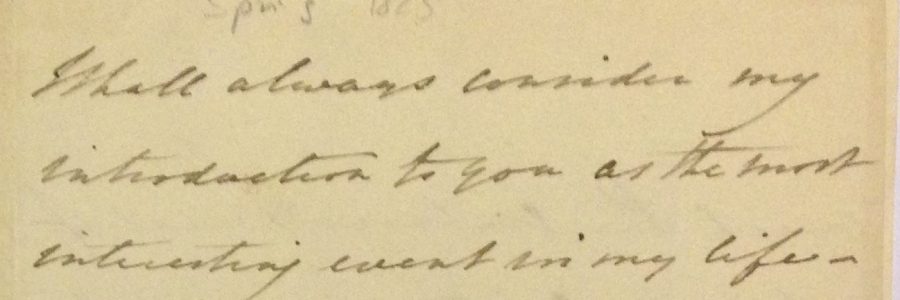 Spring 1865
I shall always consider my
introduction to you as the most
interesting event in my life –